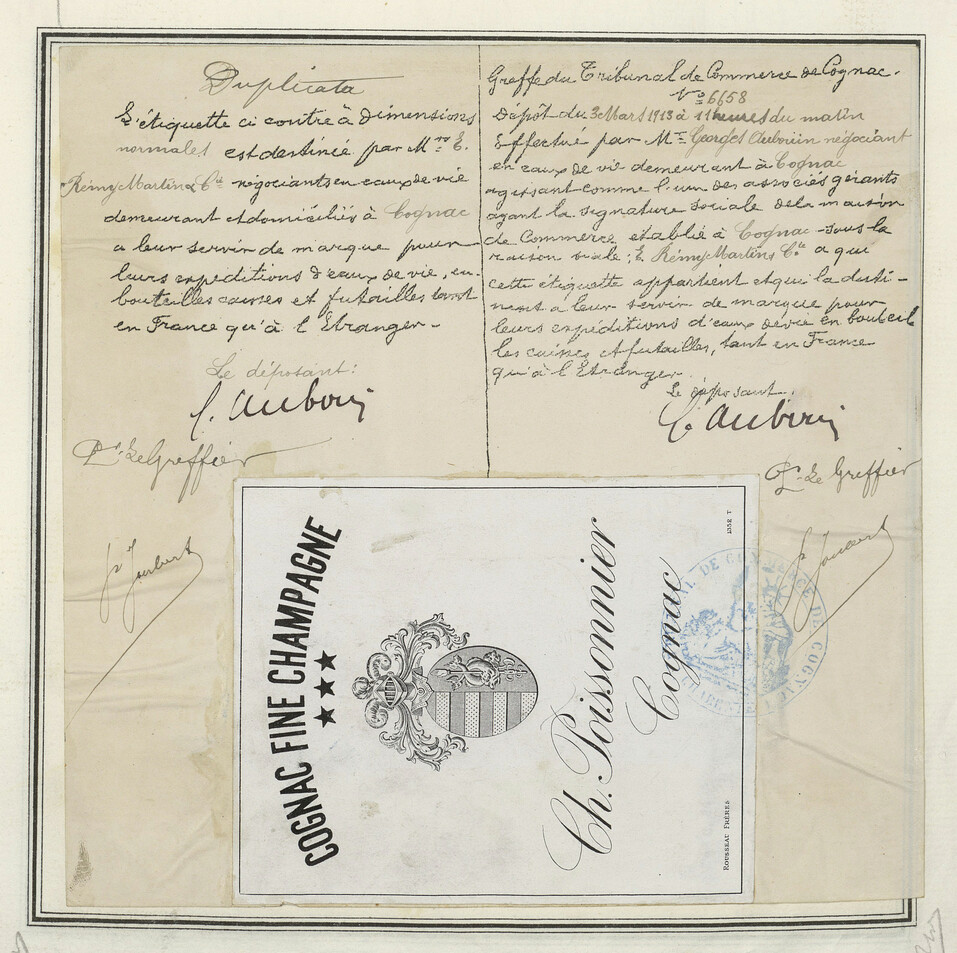 Duplicata
L'étiquette ci contre à dimensions
normales est destinée par Mrs E.
Rémy Martin & Cie négociants en eaux de vie
demeurant et domiciliés à Cognac
a leur servir de marque pour
leurs expéditions d'eaux de vie, en
bouteilles caisses et futailles tant
en France qu'à l'Etranger.
Le déposant:
G. Auboin
Pr. Le Greffier
Joubert
Greffe du Tribunal de Commerce de Cognac.
No 6658
Dépôt du 3 Mars 1913 à 11 heures du matin
Effectué par Mr Georges Aubouin négociant
en eaux de vie demeurant à Cognac
agissant comme l'un des associés gérants
ayant la signature sociale de la maison
de Commerce établie à Cognac sous la
raison sociale: E. Rémy Martin & Cie a qui
cette étiquette appartient et qui la desti-
nent a leur servir de marque pour
leurs expéditions d'eaux de vie en bouteil
les caisses et futailles, tant en France
qu'à l'Etranger.
Le déposant.
G Auboin
Pr. Le Greffier
Joubert
COGNAC FINE CHAMPAGNE
Ch. Poissonnier
Cognac
ROUSSEAU FRÈRES
1352 T
TRIBUNAL DE COMMERCE DE COGNAC